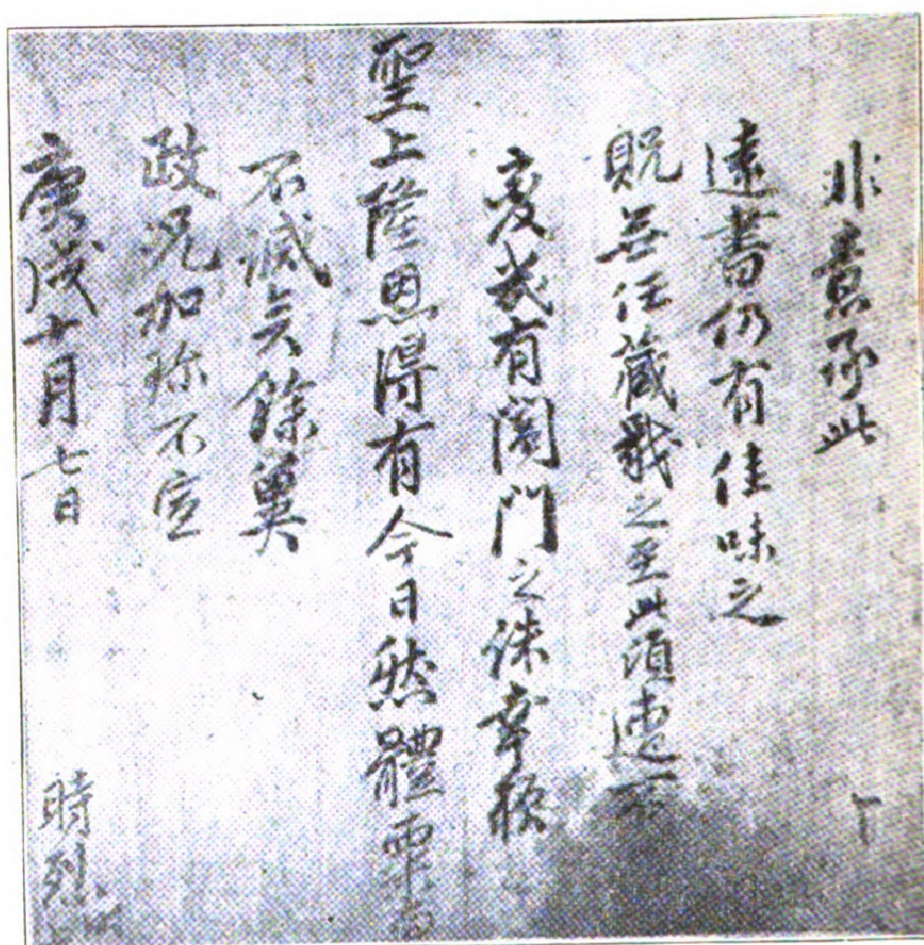 非意承此
遠書仍有佳味之
貺無任藏戢之至此須遭
變幾有闔門之誅幸
聖上隆恩得有今日然體
不滅矣餘冀
政況加珍不宣
庚戌十月七日
時烈